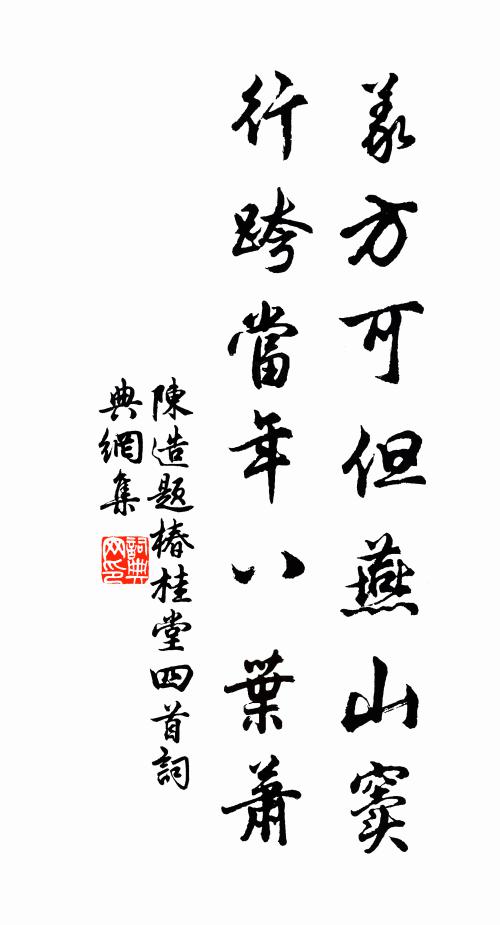 義方可但燕山竇
行跨當年八葉蕭
陳造題椿桂堂四首詞
典網集
詞典
网印